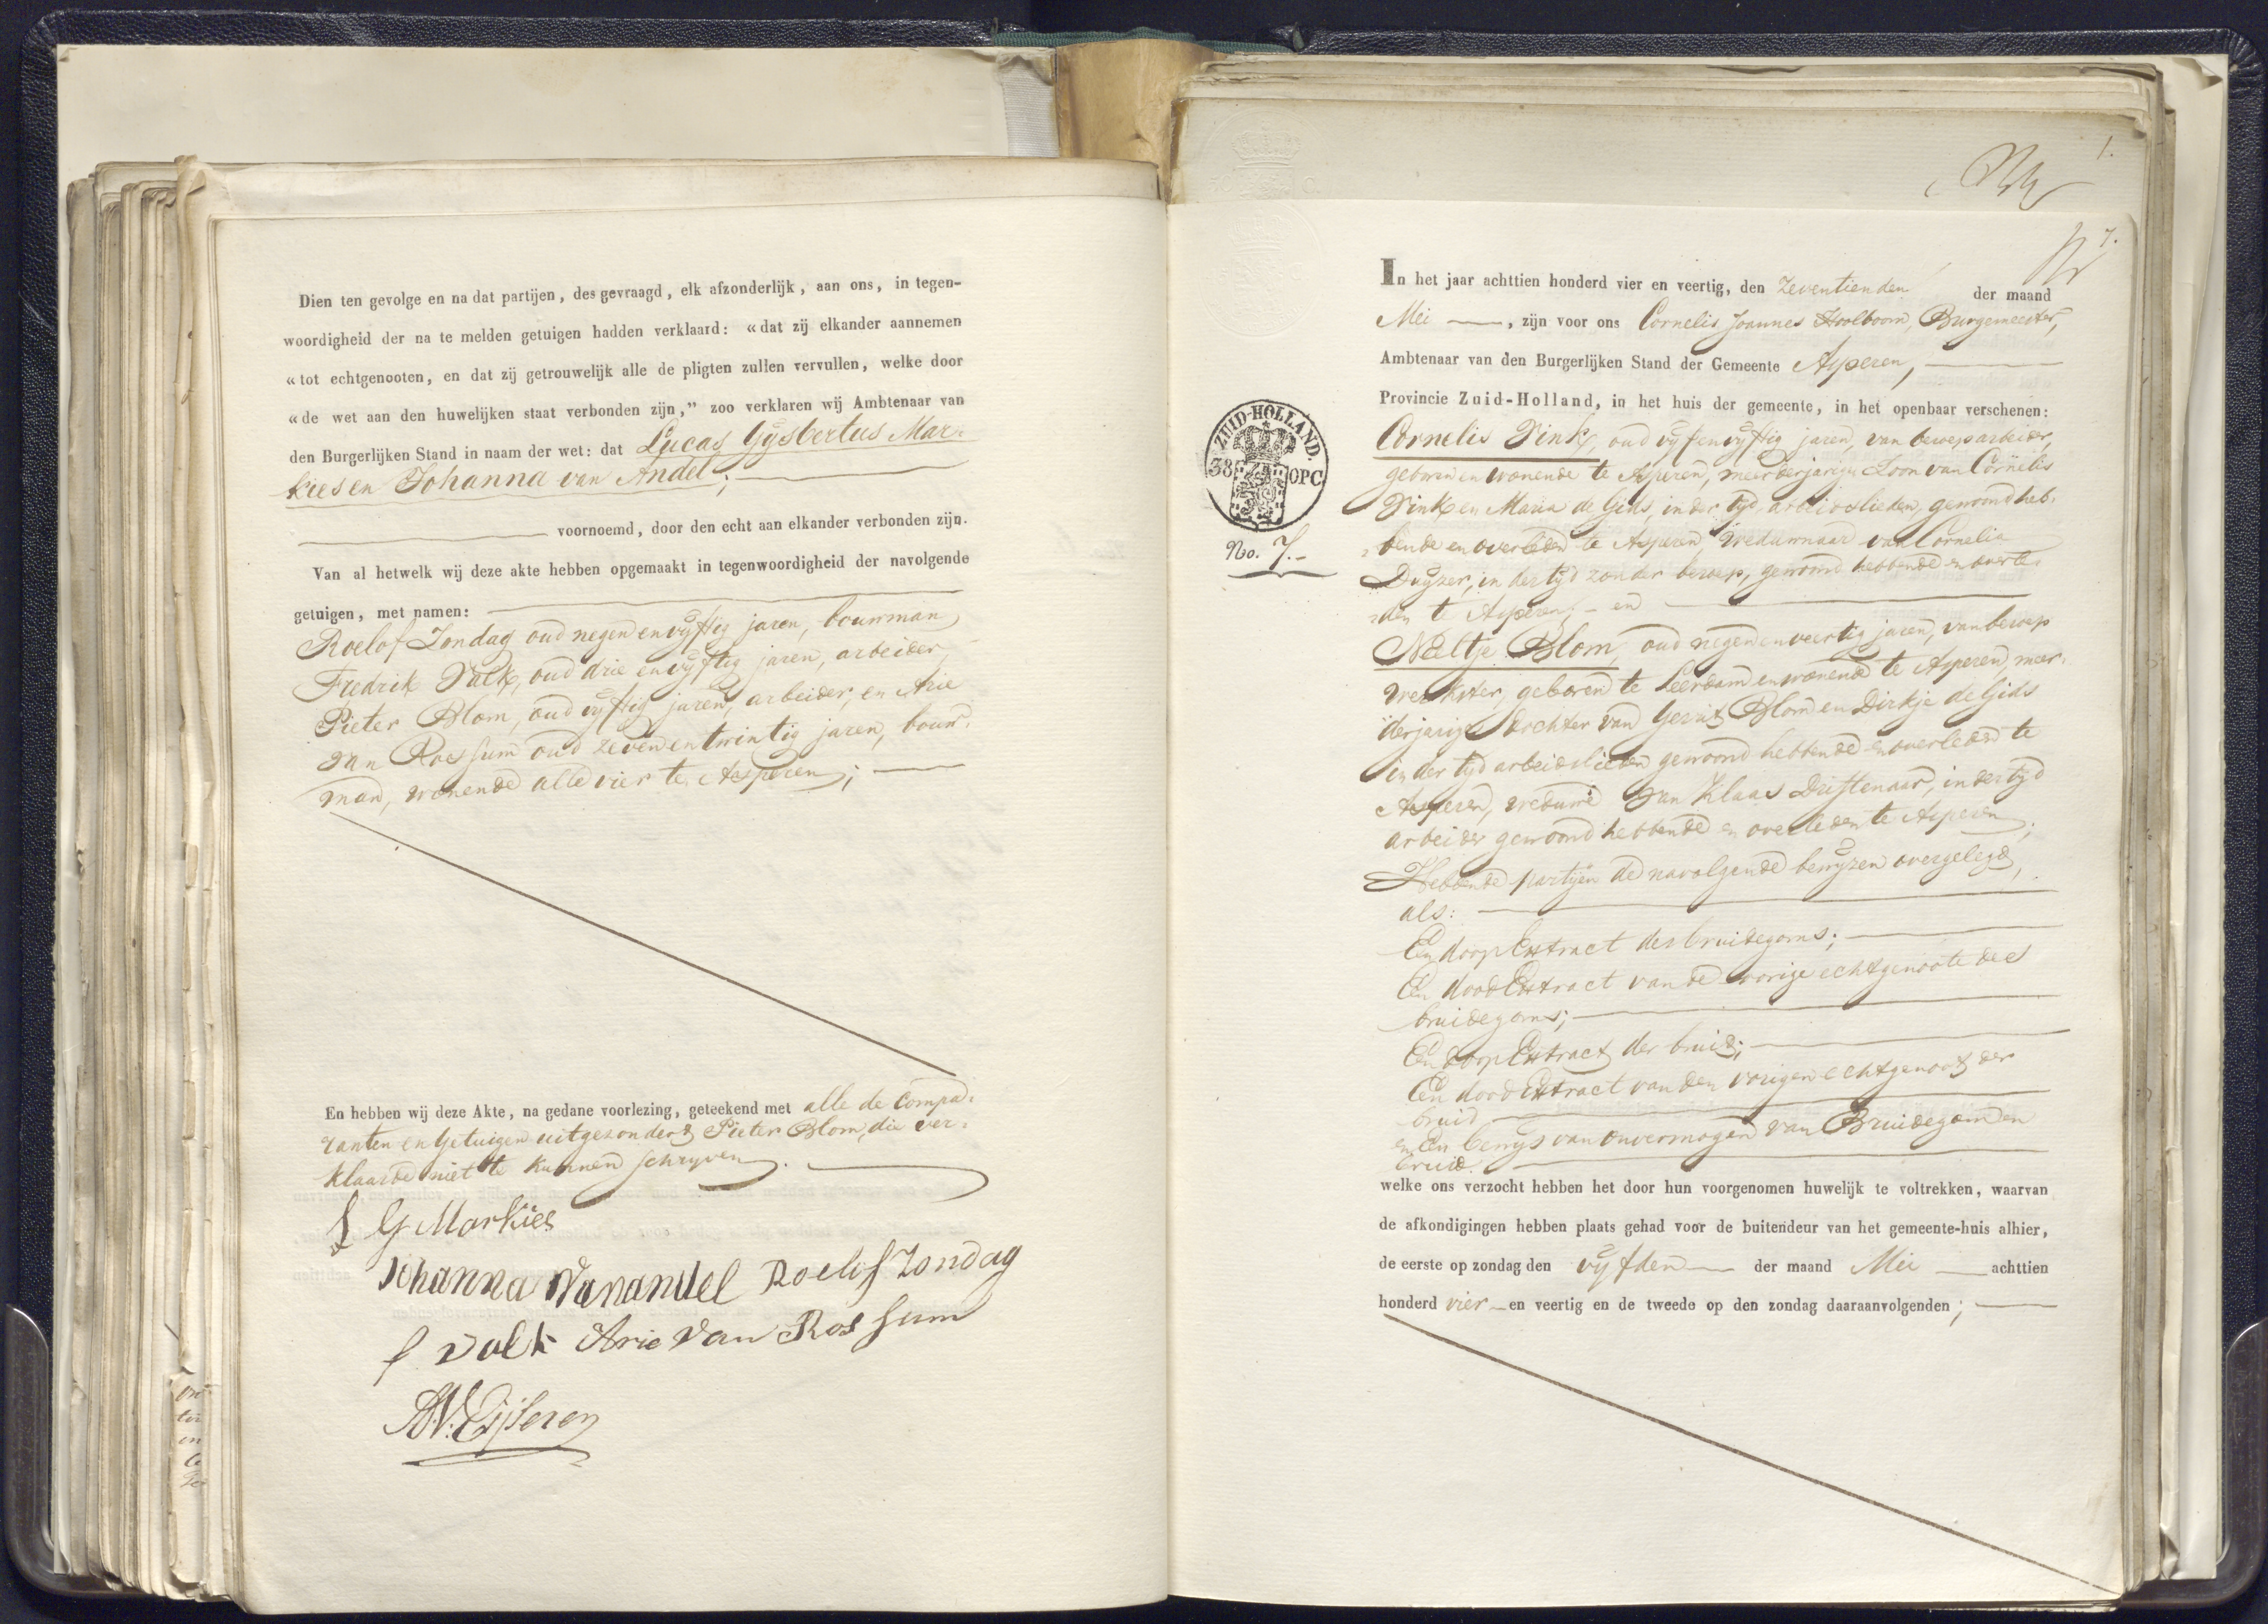 Dien ten gevolge en na dat partijen, des gevraagd, elk afzonderlijk, aan ons, in tegen-
woordigheid der na te melden getuigen hadden verklaard: «dat zij elkander aannemen
«tot echtgenooten, en dat zij getrouwelijk alle de pligten zullen vervullen, welke door
«de wet aan den huwelijken staat verbonden zijn,” zoo verklaren wij Ambtenaar van
den Burgerlijken Stand in naam der wet: dat Lucas Gijsbertus Mar-
kies en Johanna van Andel;
voornoemd, door den echt aan elkander verbonden zijn.
Van al hetwelk wij deze akte hebben opgemaakt in tegenwoordigheid der navolgende
getuigen, met namen:
Roelof Zondag oud negen en vijftig jaren, bouwman
Fredrik Valk, oud drie en vijftig jaren, arbeider,
Pieter Blom, oud vijftig jaren, arbeider, en Arie
van Rossum oud zeven en twintig jaren, bouw-
man, wonende alle vier te Asperen;
En hebben wij deze Akte, na gedane voorlezing, geteekend met alle de compa-
ranten en getuigen uitgezonderd Pieter Blom, die ver-
klaarde niet te kunnen schryven.
L G Markies
Johanna Vanandel Roelof Zondag
f valk Arie van Rossum
1.
7.
In het jaar achttien honderd vier en veertig, den zeventienden der maand
Mei, zijn voor ons Cornelis Joannes Hoolboom, Burgemeester,
Ambtenaar van den Burgerlijken Stand der Gemeente Asperen,
Provincie Zuid-Holland, in het huis der gemeente, in het openbaar verschenen:
ZUID-HOLLAND.
38 OPC
No. 7.
Cornelis Vink, oud vijf en vijftig jaren, van beroep arbeider,
geboren en wonende te Asperen, meerderjarige Zoon van Cornelis
Vink en Maria de Gids, in der tijd arbeidslieden, gewoond heb-
bende en overleden te Asperen, weduwnaar van Cornelia
in der tijd zonder beroep, gewoond hebbende en overle-
den te Asperen; - en
Neeltje Blom, oud negen en veertig jaren, van beroep
werkster, geboren te Leerdam en wonende te Asperen, meer-
derjarige Dochter van Gerrit Blom en Dirkje de Gids
in der tijd arbeidslieden gewoond hebbende en overleden te
Asperen, weduwe van Klaas Driftenaar, in der tijd
arbeider gewoond hebbende en overleden te Asperen;
Hebbende partijen de navolgende bewijzen overgelegd,
als:
Een doop Extract des bruidegoms;
Een dood Extract van de vorige echtgenoote des
bruidegoms;
Een doop Extract der bruid;
Een dood Extract van den vorigen echtgenoot der
bruid
en Een bewijs van onvermogen van Bruidegom en
bruid.
welke ons verzocht hebben het door hun voorgenomen huwelijk te voltrekken, waarvan
de afkondigingen hebben plaats gehad voor de buitendeur van het gemeente-huis alhier,
de eerste op zondag den vijfden der maand Mei achttien
honderd vier en veertig en de tweede op den zondag daaraanvolgenden;